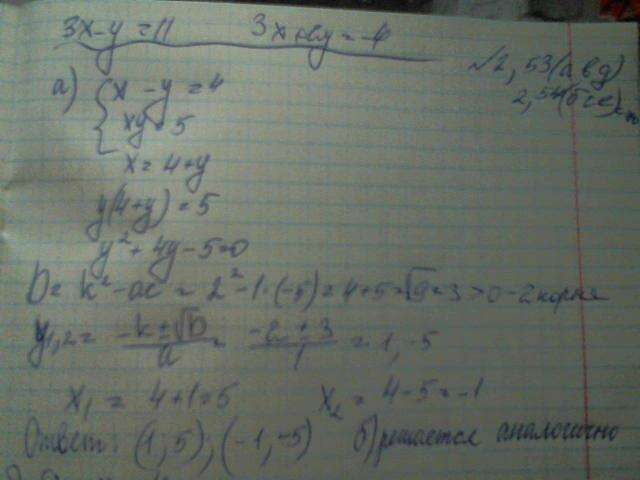 3x-y=11 3x+y=-4
№2,53(авд)
2,54(бге)
а) { x - y = 4
xy = 5
x = 4+y
y(4+y) = 5
y² + 4y - 5=0
D = k² - ac = 2² - 1·(-5) = 4+5 = √9 = 3 >0 - 2 корня
y₁,₂ = (-k±√D)/a = (-2±3)/1 = 1, -5
x₁ = 4+1=5 x₂ = 4-5=-1
Ответ: (1, 5), (-1, -5) б) решается аналогично